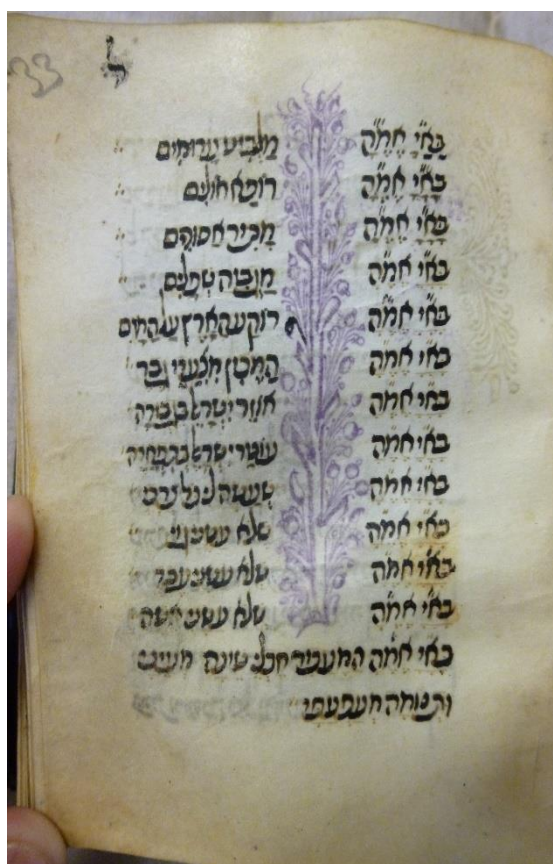 33 ל
בא״י אמ״ה מלביש ערומים
בא״י אמ״ה רופא חולים
בא״י אמ״ה מתיר אסורים
בא״י אמ״ה מגביה שפלים
בא״י אמ״ה רוקע הארץ על המים
בא״י אמ״ה המכין מצעדי גבר
בא״י אמ״ה אוזר ישראל בגבורה
בא״י אמ״ה עוטר ישראל בתפארה
בא״י אמ״ה שעשה לי כל צרכי
בא״י אמ״ה שלא עשני גוי
בא״י אמ״ה שלא עשני עבד
בא״י אמ״ה שלא עשני אשה
בא״י אמ״ה המעביר חבלי שינה מעיני
ותנומה מעפעפי